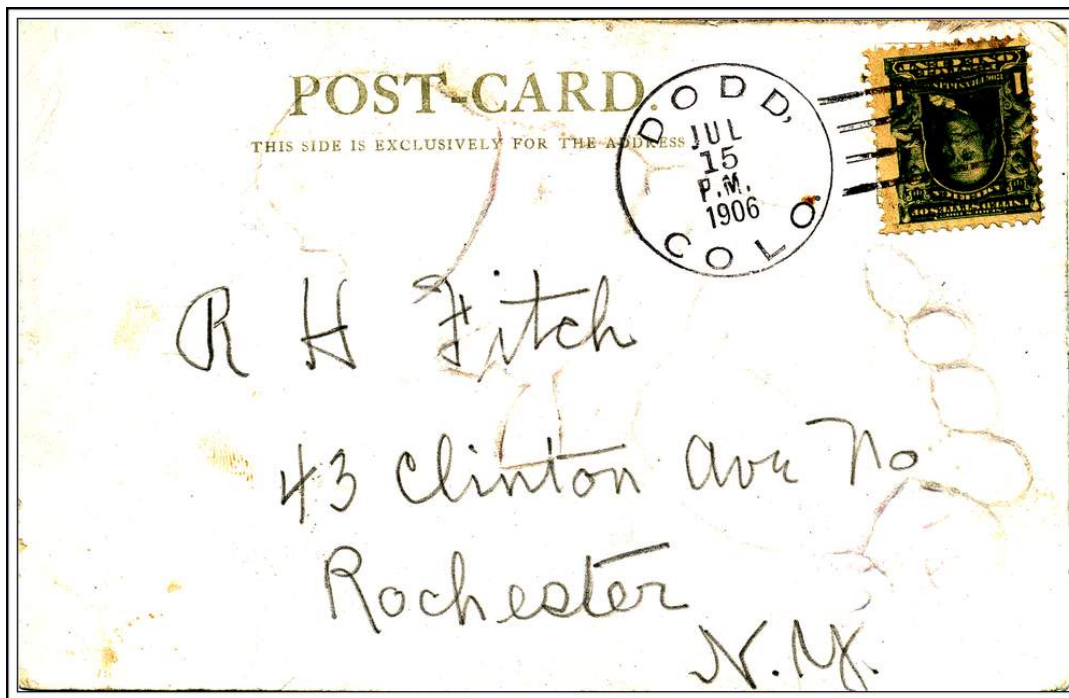 POST-CARD.
THIS SIDE IS EXCLUSIVELY FOR THE ADDRESS
DODD,
JUL
15
P.M.
1906
COLO.
R H Fitch
43 Clinton Ave No
Rochester
N.Y.